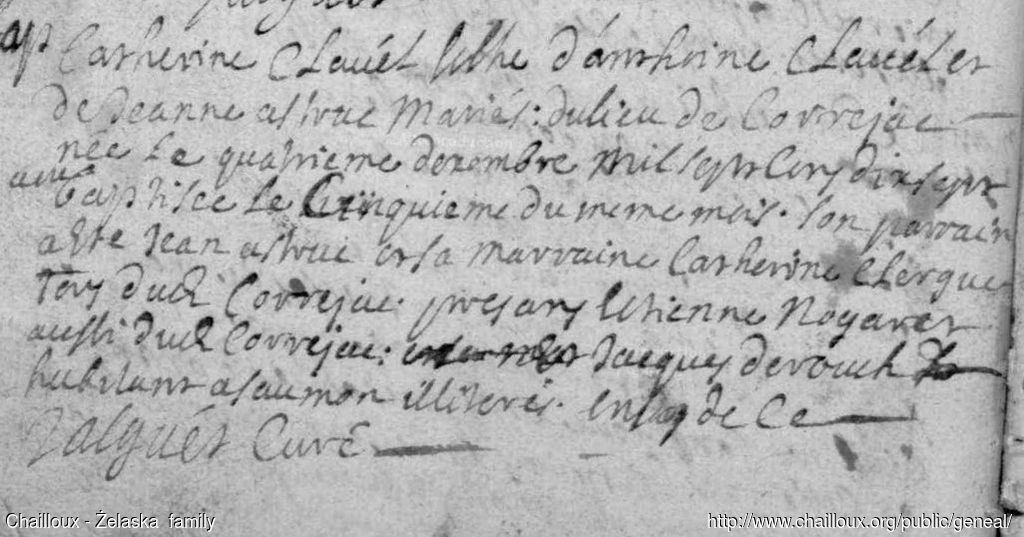 Catherine Clavél fillhe d'anthoine Clavél et
de Jeanne astruc Mariés: du lieu de Correjac
née le quatrieme dexembre mil sept Cens dix sept
baptisée le Cinquieme du meme mois. son parrain
a ete Jean astruc et sa marraine Catherine Clergue
tous dud Correjac. presans Etienne Nogaret
aussi dud Correjac: Jacques derouch
habitant a saumon illiterés. en foy de Ce
Jalguét Curé
Chailloux - Żelaska family
http://www.chailloux.org/public/geneal/